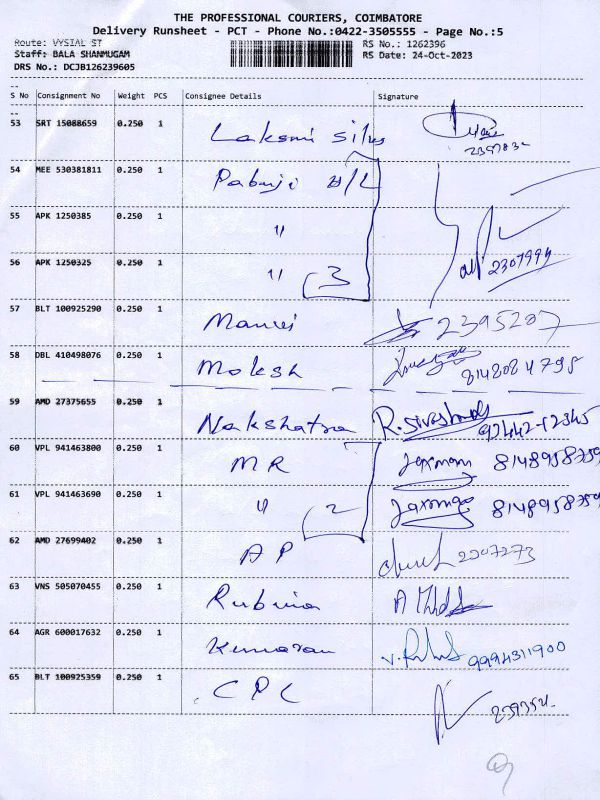 THE PROFESSIONAL COURIERS, COIMBATORE
Delivery Runsheet - PCT - Phone No.:0422-3505555 - Page No.:5
Route: VYSIAL ST
Staff: BALA SHANMUGAM
DRS No.: DCJB126239605
RS No.: 1262396
RS Date: 24-Oct-2023
S No Consignment No Weight PCS Consignee Details Signature
53 SRT 15088659 0.250 1 Laksmi Silks
54 MEE 530381811 0.250 1 Pabuji
55 APK 1250385 0.250 1 "
56 APK 1250325 0.250 1 " 3 2307994
57 BLT 100925290 0.250 1 2395287
58 DBL 410498076 0.250 1 Moksh 8148084795
59 AMD 27375655 0.250 1 Nakshatra 92442-12345
60 VPL 941463800 0.250 1 MR 8148958759
61 VPL 941463690 0.250 1 " 2 8148958759
62 AMD 27699402 0.250 1 AP 2307273
63 VNS 505070455 0.250 1 Rubinia
64 AGR 600017632 0.250 1 Kumaran 9994311900
65 BLT 100925359 0.250 1 CPC